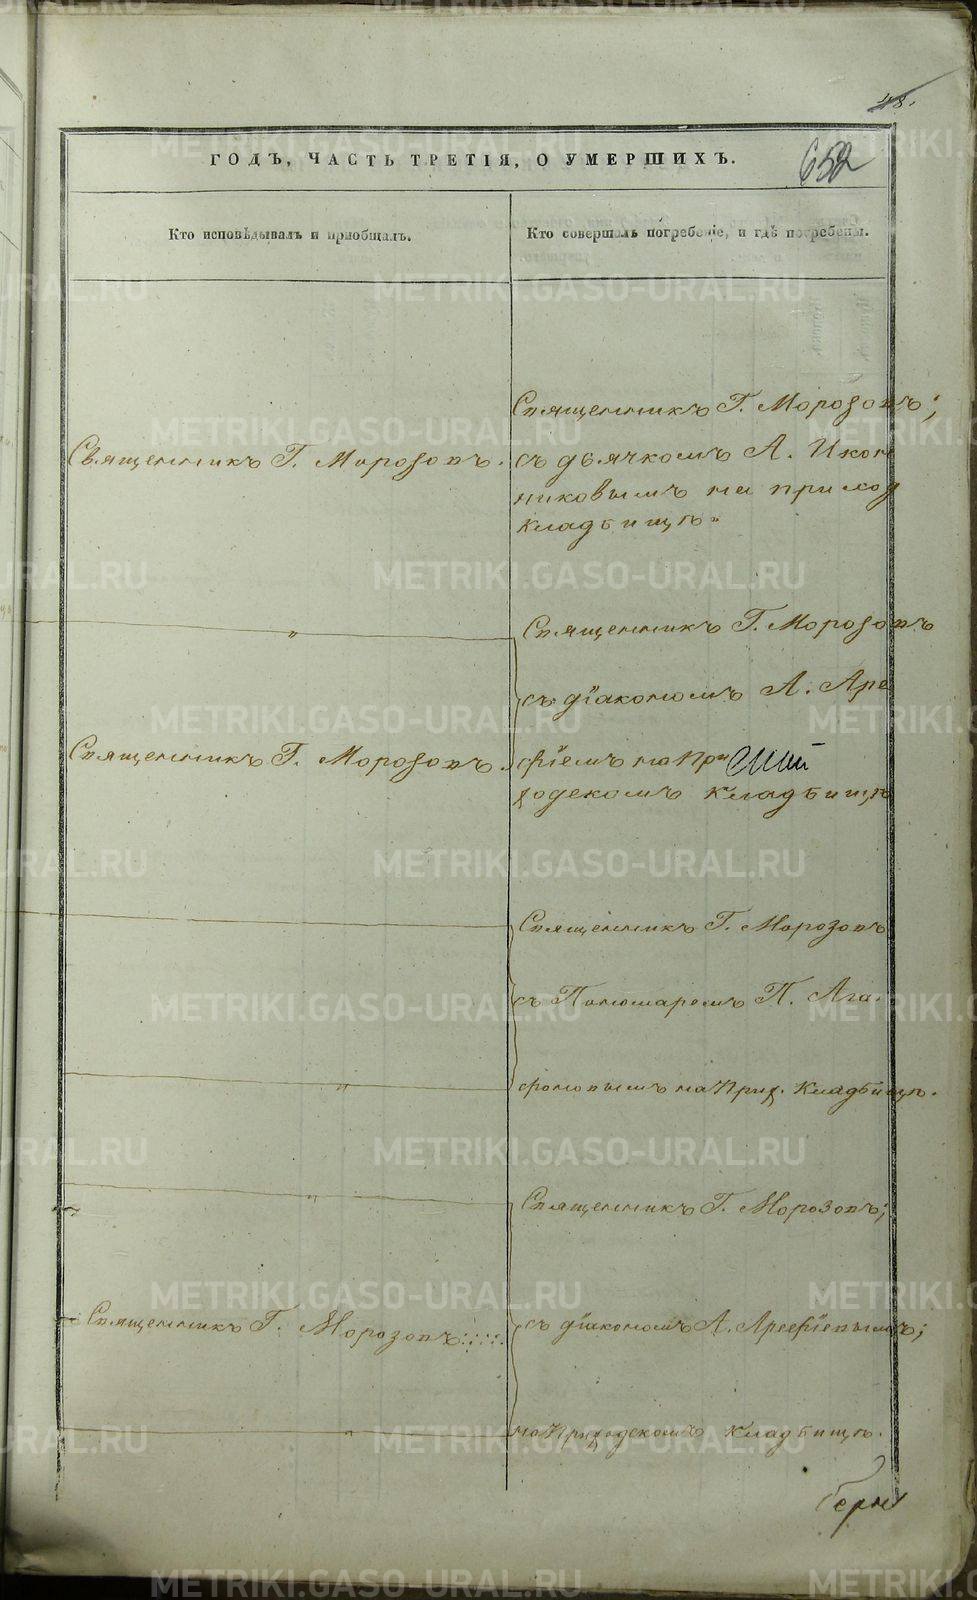 48.
ГОДЪ, ЧАСТЬ ТРЕТІЯ, О УМЕРШИХЪ.
652
Кто исповѣдывалъ и пріобщалъ.
Кто совершалъ погребеніе, и гдѣ погребены.
Священникъ Г. Морозовъ.
Священникъ Г. Морозовъ;
съ дьячкомъ А. Икон
никовымъ на приход
кладбищѣ
Священникъ Г. Морозовъ
съ діакономъ А. Аре
Священникъ Г. Морозовъ.
фіемъ на При
ходскомъ кладбищѣ
Священникъ Г. Морозовъ
съ Пономаремъ П. Ага
фоновымъ на Прих. кладбищѣ.
Священникъ Г. Морозовъ;
Священникъ Г. Морозовъ
съ діакономъ А. Арефіевымъ;
на Приходскомъ кладбищѣ.
METRIKI.GASO-URAL.RU